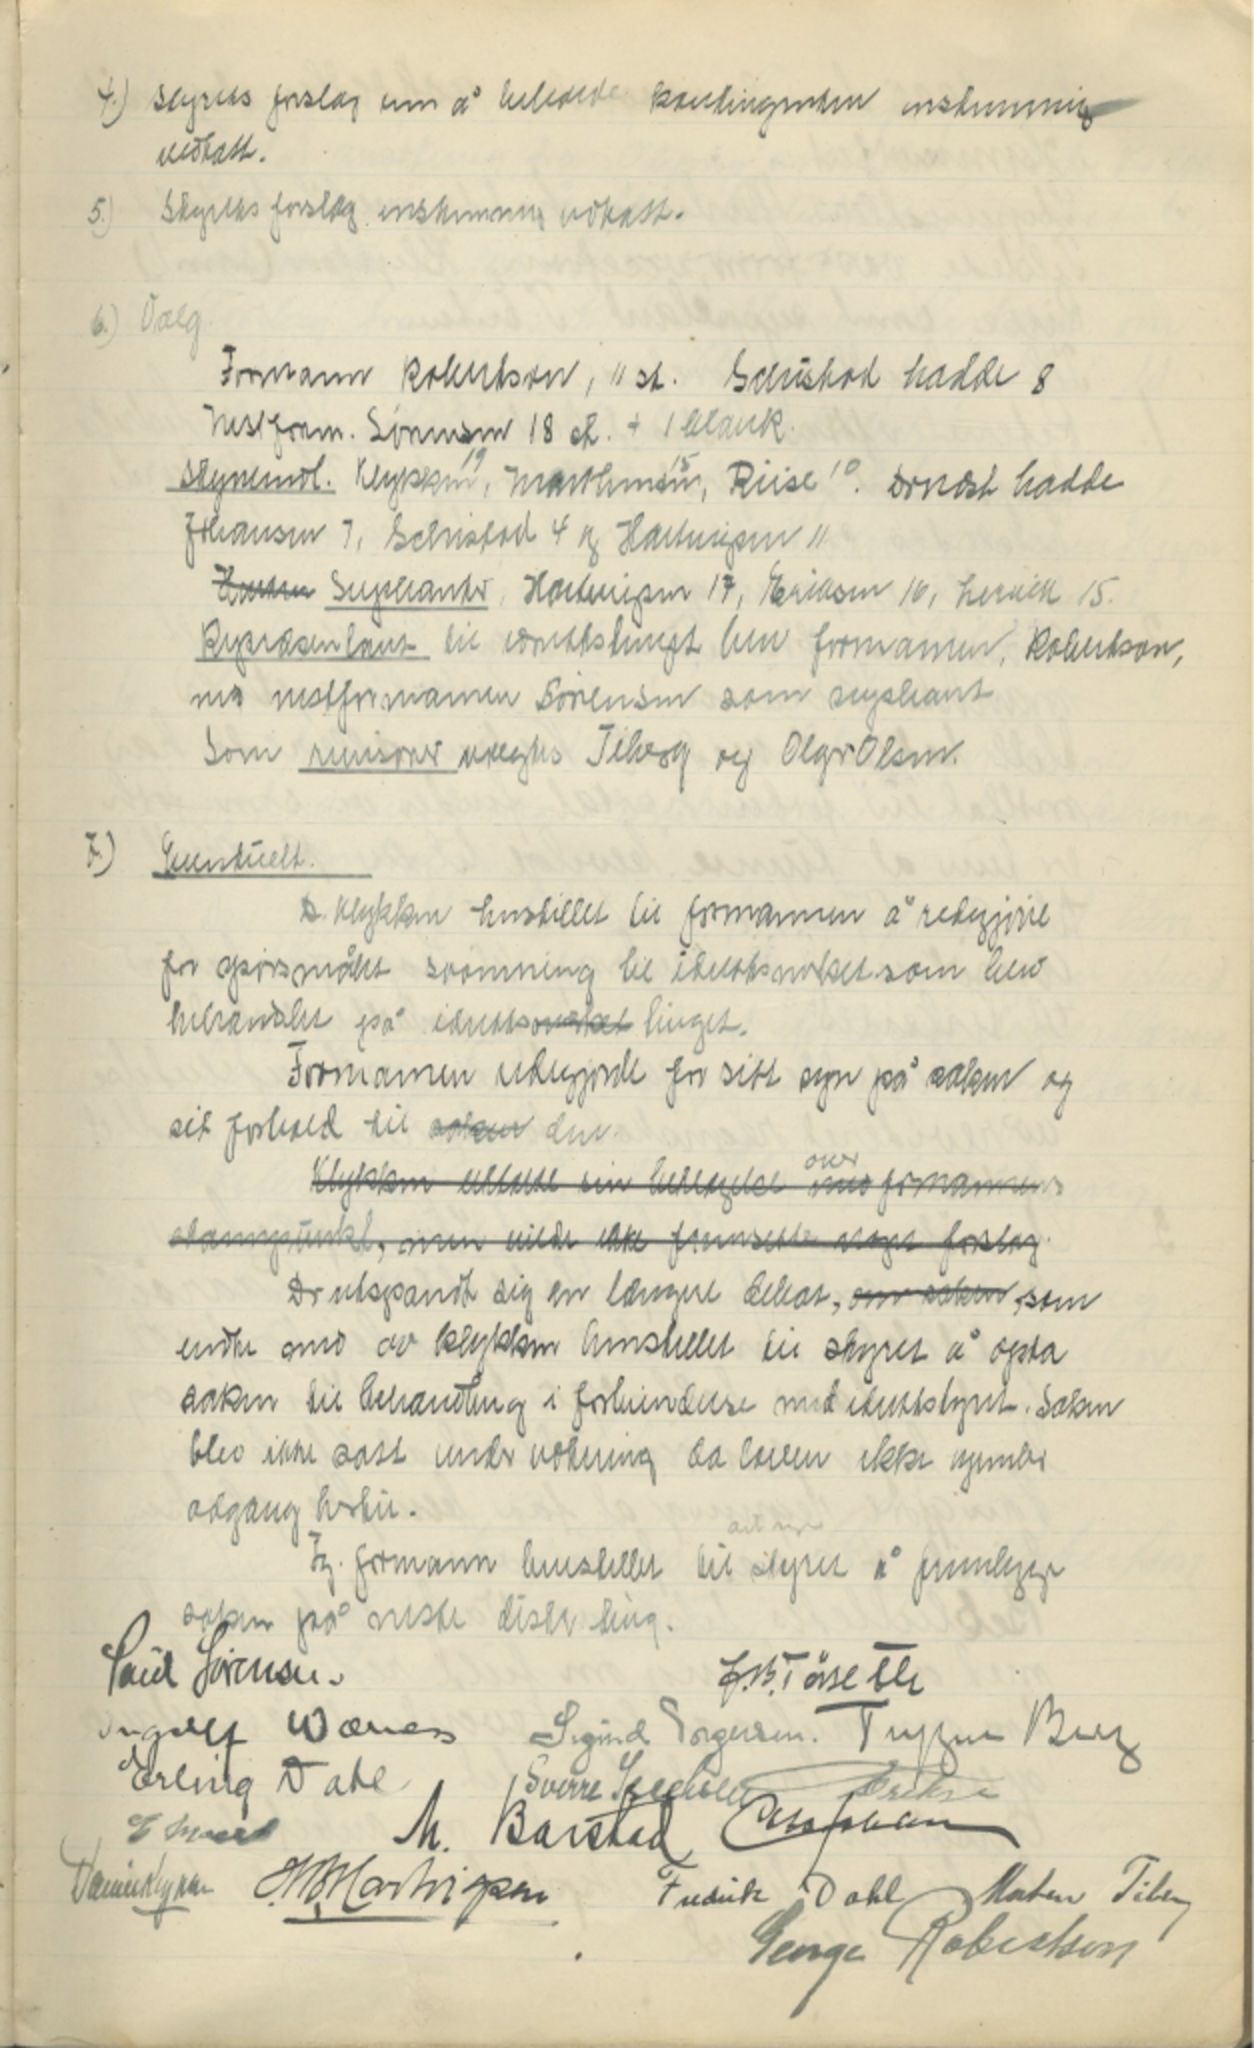 4.) Styrets forslag om å beholde kontingenten enstemmig
vedtatt.
5.) Styrets forslag enstemmig vedtatt.
6.) Valg.
Formann Robertson, 11 st. Schistad hadde 8
Nestform. Sørensen 18 st. + 1 blank.
Styremdl. Klykken 19, Marthinsen 15, Riise 10. Dernæst hadde
Johansen 7, Schistad 4 og Hartvigsen 11
Suppleanter, Hartvigsen 17, Eriksen 16, 15.
Repræsentant til idrettstinget blev formannen, Robertson,
med nestformannen Sørensen som supleant
Som revisorer valgtes Tiberg og Olgr Olsen.
7.) Eventuelt.
D. Klykken henstillet til formannen å redegjøre
for spørsmålet svømning til idrettsmerket som blev
behandlet på idrettsmerket tinget.
Formannen redegjorde for sitt syn på saken og
sit forhold til saken den.
Klykken uttalte sin beklagelse over med formannens
standpunkt, men vilde ikke fremsette noget forslag.
Der utspandt sig en længere debat, om saken, som
endte med av Klykken henstillet til styret å opta
saken til behandling i forbindelse med idrettstyret. Saken
blev ikke satt under votering da loven ikke gjender
adgang hertil.
Fg. formann henstillet til det nye styret å fremlegge
saken på neste distr. ting.
Paul Sørensen. J. B. Tørseth
Ingolf Wæraas Sigurd Torgersen. Trygve Berg
Erling Dahl Sverre Eriksen
M. Barstad
Daniel Klykken H. Hartvigsen Fredrik Dahl Morten Tiberg
George Robertson